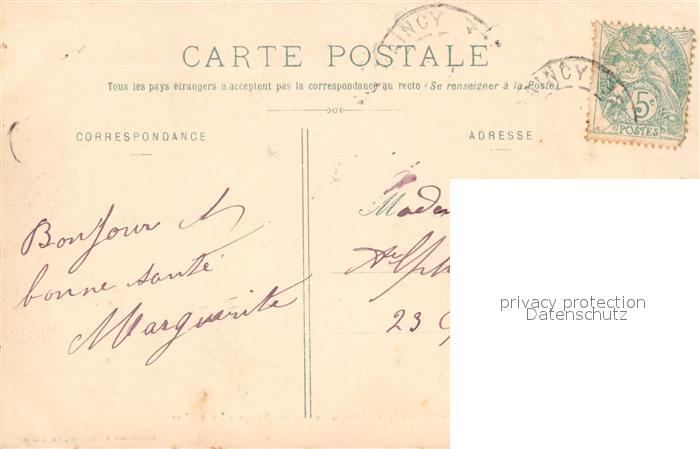 CARTE POSTALE
Tous les pays étrangers n'acceptent pas la correspondance au recto (Se renseigner à la Poste)
CORRESPONDANCE
ADRESSE
INCY
INCY
5c
POSTES
Bonjour
bonne santé
Marguerite
23
privacy protection
Datenschutz